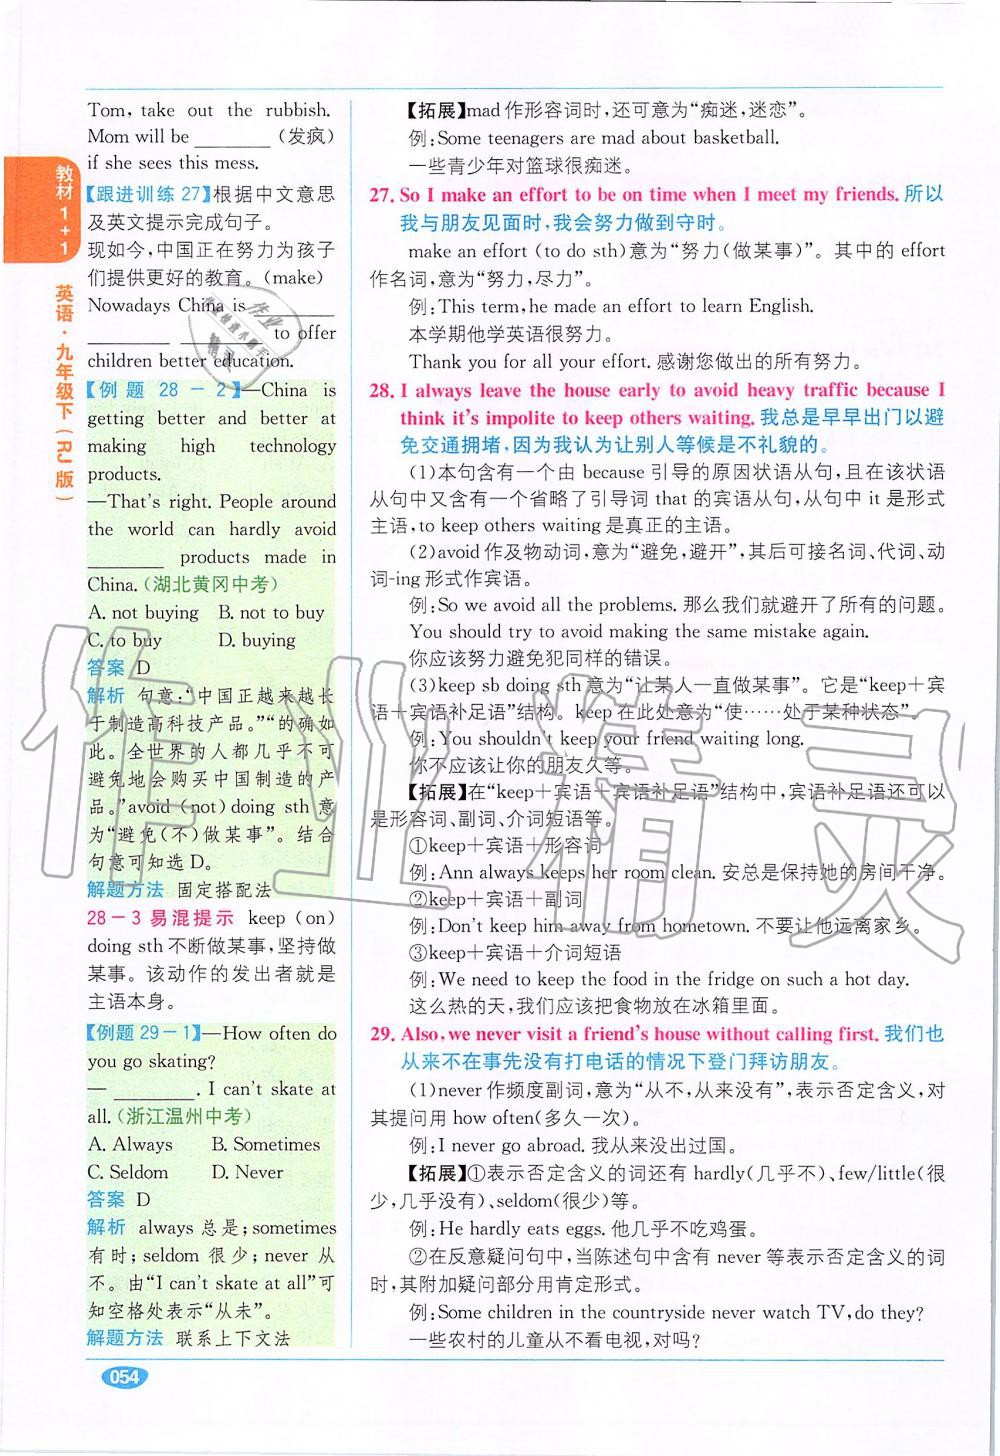 教材1+1
英语·九年级下（RJ版）
Tom, take out the rubbish.
Mom will be ________ （发疯）
if she sees this mess.
【跟进训练27】根据中文意思
及英文提示完成句子。
现如今,中国正在努力为孩子
们提供更好的教育。(make)
Nowadays China is ________
________ ________ to offer
children better education.
【例题28－2】—China is
getting better and better at
making high technology
products.
—That's right. People around
the world can hardly avoid
________ products made in
China.（湖北黄冈中考）
A. not buying B. not to buy
C. to buy D. buying
答案 D
解析 句意:“中国正越来越长
于制造高科技产品。”“的确如
此。全世界的人都几乎不可
避免地会购买中国制造的产
品。”avoid (not) doing sth 意
为“避免(不)做某事”。结合
句意可知选D。
解题方法 固定搭配法
28－3易混提示 keep (on)
doing sth不断做某事,坚持做
某事。该动作的发出者就是
主语本身。
【例题29－1】—How often do
you go skating?
— ________. I can't skate at
all.（浙江温州中考）
A. Always B. Sometimes
C. Seldom D. Never
答案 D
解析 always 总是; sometimes
有时; seldom 很少; never 从
不。由“I can't skate at all”可
知空格处表示“从未”。
解题方法 联系上下文法
【拓展】mad作形容词时,还可意为“痴迷,迷恋”。
例:Some teenagers are mad about basketball.
一些青少年对篮球很痴迷。
27. So I make an effort to be on time when I meet my friends. 所以
我与朋友见面时,我会努力做到守时。
make an effort (to do sth)意为“努力(做某事)”。其中的 effort
作名词,意为“努力,尽力”。
例:This term, he made an effort to learn English.
本学期他学英语很努力。
Thank you for all your effort. 感谢您做出的所有努力。
28. I always leave the house early to avoid heavy traffic because I
think it's impolite to keep others waiting. 我总是早早出门以避
免交通拥堵,因为我认为让别人等候是不礼貌的。
(1)本句含有一个由 because 引导的原因状语从句,且在该状语
从句中又含有一个省略了引导词 that 的宾语从句,从句中 it 是形式
主语,to keep others waiting 是真正的主语。
(2)avoid作及物动词,意为“避免,避开”,其后可接名词、代词、动
词-ing 形式作宾语。
例:So we avoid all the problems. 那么我们就避开了所有的问题。
You should try to avoid making the same mistake again.
你应该努力避免犯同样的错误。
(3)keep sb doing sth 意为“让某人一直做某事”。它是“keep＋宾
语＋宾语补足语”结构。keep在此处意为“使……处于某种状态”。
例:You shouldn't keep your friend waiting long.
你不应该让你的朋友久等。
【拓展】在“keep＋宾语＋宾语补足语”结构中,宾语补足语还可以
是形容词、副词、介词短语等。
①keep＋宾语＋形容词
例:Ann always keeps her room clean. 安总是保持她的房间干净。
②keep＋宾语＋副词
例:Don't keep him away from hometown. 不要让他远离家乡。
③keep＋宾语＋介词短语
例:We need to keep the food in the fridge on such a hot day.
这么热的天,我们应该把食物放在冰箱里面。
29. Also, we never visit a friend's house without calling first. 我们也
从来不在事先没有打电话的情况下登门拜访朋友。
(1)never作频度副词,意为“从不,从来没有”,表示否定含义,对
其提问用 how often(多久一次)。
例:I never go abroad. 我从来没出过国。
【拓展】①表示否定含义的词还有 hardly(几乎不)、few/little(很
少,几乎没有)、seldom(很少)等。
例:He hardly eats eggs. 他几乎不吃鸡蛋。
②在反意疑问句中,当陈述句中含有 never 等表示否定含义的词
时,其附加疑问部分用肯定形式。
例:Some children in the countryside never watch TV, do they?
一些农村的儿童从不看电视,对吗?
054
作业精灵